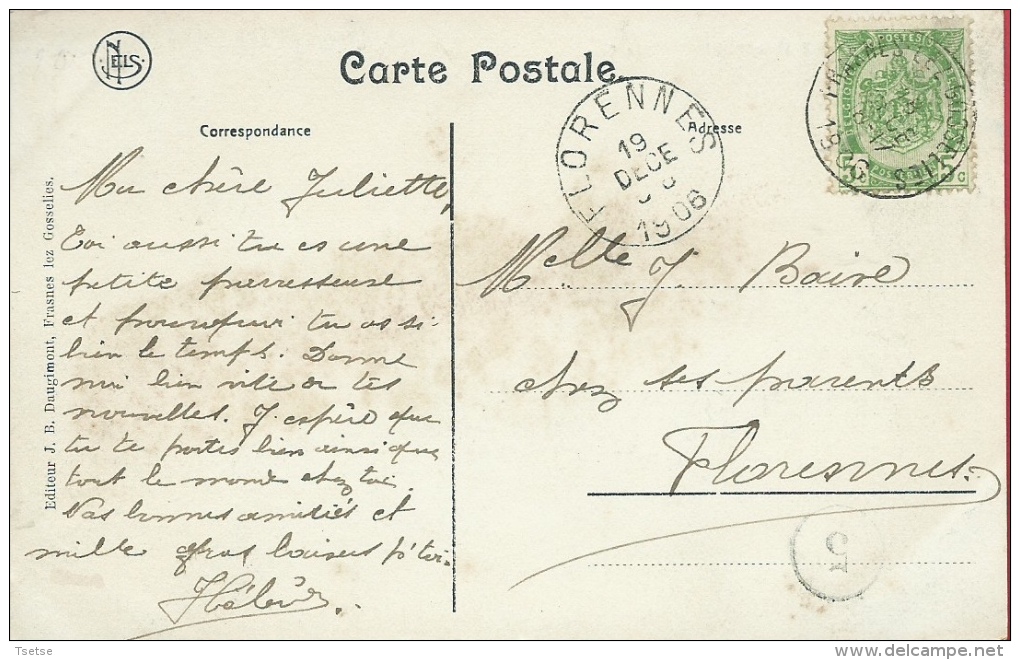 NELS
Carte Postale.
Correspondance
Adresse
FLORENNES
19
DECE
1906
FRASNES LEZ GOSSELIES
POSTES
Ma chère Juliette,
Toi aussi tu es une
petite paresseuse
et pourquoi tu as si
bien le temps. Donne
moi bien vite de tes
nouvelles. J'espère que
tu te portes bien ainsi que
tout le monde chez toi.
Mes bonnes amitiés et
mille gros baisers p' toi.
Melle J. Baive
chez ses parents
Florennes
5
Editeur J. B. Daugimont, Frasnes lez Gosselies.
Tsetse
delcampe.net